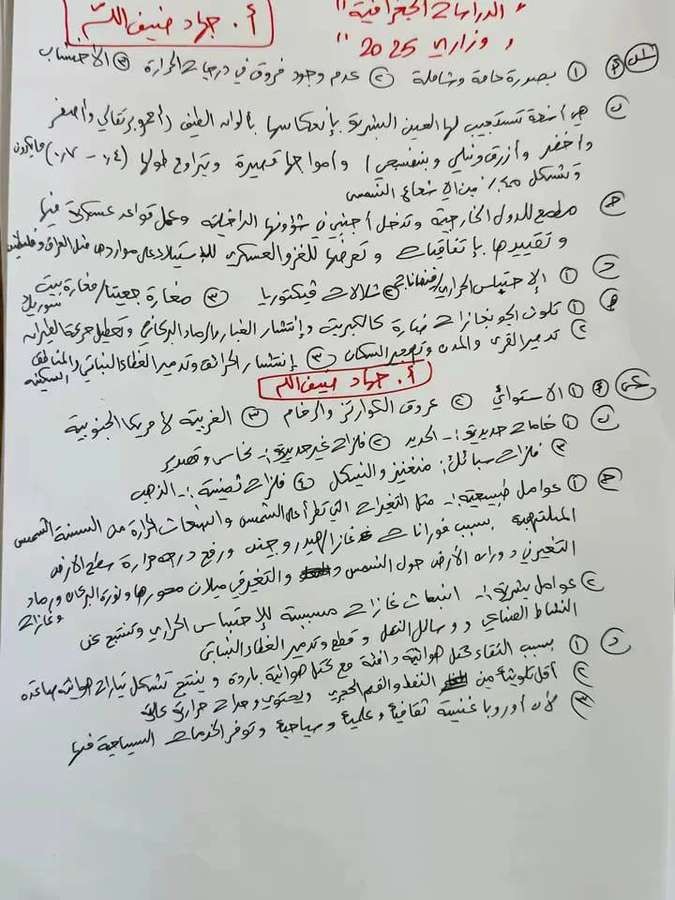 أ. جهاد ضيف الله
" الدراسات الجغرافية "
" وزاري 2025 "
① بصورة عامة وشاملة ② عدم وجود فروق في درجات الحرارة ③ الأخشاب
هي أشعة تستجيب لها العين البشرية بإنعكاسها بألوان الطيف (أحمر برتقالي وأصفر
وأخضر وأزرق ونيلي وبنفسجي) وأمواجها قصيرة ويتراوح طولها (٠,٤ - ٠,٧) مايكرون
وتشكل من الاشعاع الشمسي
مطمع للدول الخارجية وتدخل أجنبي في شؤونها الداخلية وعمل قواعد عسكرية فيها
وتقييدها بإتفاقيات وتعرضها للغزو العسكري للإستيلاء على مواردها مثل العراق وفلسطين
① الإحتباس الحراري/ ② شلالات فيكتوريا ③ مغارة جعيتا/مغارة بيت
① تلوث الجو بغازات ضارة كالكبريت وإنتشار الغبار والرماد البركاني وتعطيل حركة الطيران
② تدمير القرى والمدن وتهجير السكان ③ إنتشار الحرائق وتدمير الغطاء النباتي والمناطق السكنية
أ. جهاد ضيف الله
① الاستوائي ② عروق الكوارتز والرخام ③ الغربية لأمريكا الجنوبية
① خامات حديدية :- الحديد ② فلزات غير حديدية :- نحاس وقصدير
③ فلزات سبائك: منغنيز والنيكل ④ فلزات ثمينة :- الذهب
① عوامل طبيعية :- مثل التغيرات التي تطرأ على الشمس وانبعاث الحرارة من ألسنة الشمس
الملتهبة بسبب فورانات غاز الهيدروجين ورفع درجة حرارة سطح الأرض
التغير في دوران الأرض حول الشمس والتغير في ميلان محورها وثورة البركان ورماد
وغازات
② عوامل بشرية :- انبعاث غازات مسببة للإحتباس الحراري وتنتج عن
النشاط الصناعي ووسائل النقل وقطع وتدمير الغطاء النباتي
① بسبب التقاء كتل هوائية دافئة مع كتل هوائية باردة وينتج تشكل تيارات هوائية صاعدة
② أقل تلويثا من النفط والفحم الحجري ويحتوي وحدات حرارية عالية
③ لأن أوروبا غنية ثقافيا وعلميا وسياحيا وتوفر الخدمات السياحية فيها